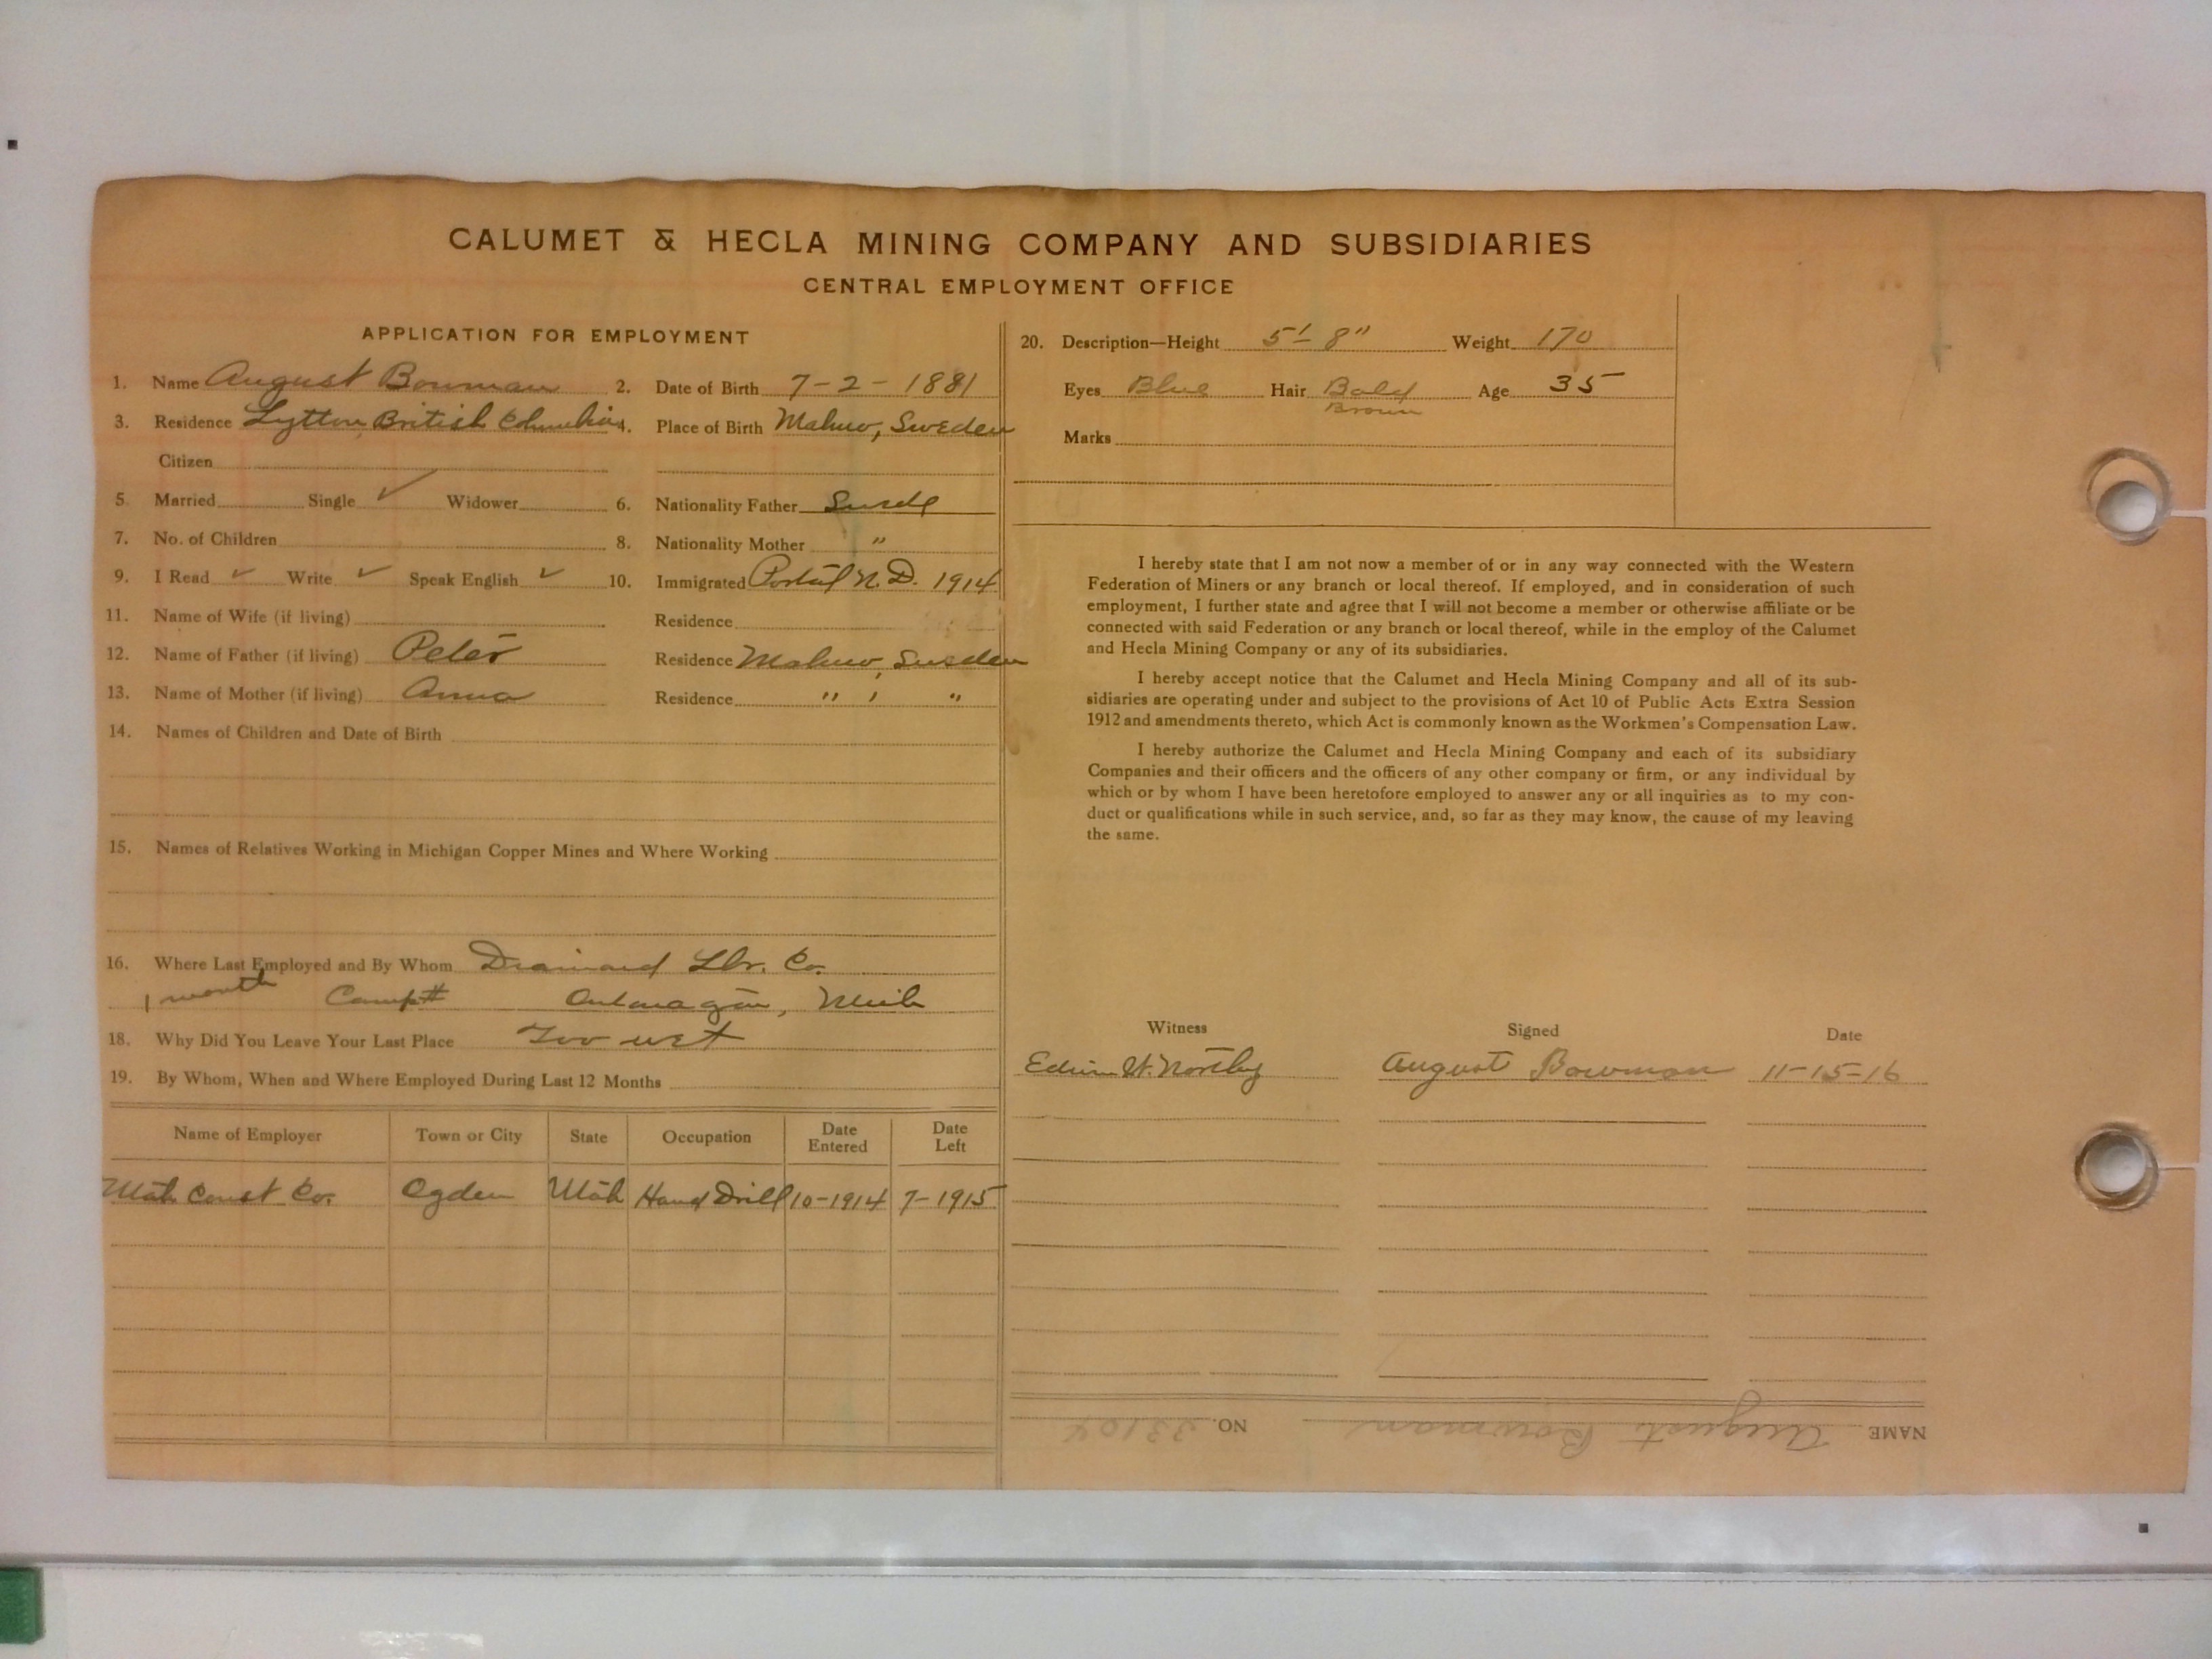 CALUMET & HECLA MINING COMPANY AND SUBSIDIARIES
CENTRAL EMPLOYMENT OFFICE
APPLICATION FOR EMPLOYMENT
1. Name August Bowman 2. Date of Birth 7-2-1881
3. Residence Lytton British Columbia 4. Place of Birth Malmo, Sweden
Citizen
5. Married Single ✓ Widower 6. Nationality Father Swede
7. No. of Children 8. Nationality Mother "
9. I Read ✓ Write ✓ Speak English ✓ 10. Immigrated Portal N.D. 1914
11. Name of Wife (if living) Residence
12. Name of Father (if living) Peter Residence Malmo, Sweden
13. Name of Mother (if living) Anna Residence " , "
14. Names of Children and Date of Birth
15. Names of Relatives Working in Michigan Copper Mines and Where Working
16. Where Last Employed and By Whom Lbr. Co.
1 month Camp # Ontonagon, Mich
18. Why Did You Leave Your Last Place Too wet
19. By Whom, When and Where Employed During Last 12 Months
Name of Employer Town or City State Occupation Date Entered Date Left
Utah Const Co. Ogden Utah Hand Drill 10-1914 7-1915
20. Description—Height 5'-8" Weight 170
Eyes Blue Hair Bald Age 35
Brown
Marks
I hereby state that I am not now a member of or in any way connected with the Western
Federation of Miners or any branch or local thereof. If employed, and in consideration of such
employment, I further state and agree that I will not become a member or otherwise affiliate or be
connected with said Federation or any branch or local thereof, while in the employ of the Calumet
and Hecla Mining Company or any of its subsidiaries.
I hereby accept notice that the Calumet and Hecla Mining Company and all of its sub-
sidiaries are operating under and subject to the provisions of Act 10 of Public Acts Extra Session
1912 and amendments thereto, which Act is commonly known as the Workmen's Compensation Law.
I hereby authorize the Calumet and Hecla Mining Company and each of its subsidiary
Companies and their officers and the officers of any other company or firm, or any individual by
which or by whom I have been heretofore employed to answer any or all inquiries as to my con-
duct or qualifications while in such service, and, so far as they may know, the cause of my leaving
the same.
Witness Signed Date
Edwin W. Northey August Bowman 11-15-16
NAME August Bowman NO. 33104